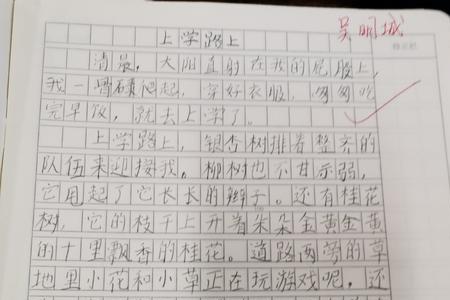 上学路上
吴明城
清晨，太阳直射在我的屁股上，
我一骨碌爬起，穿好衣服，匆匆吃
完早饭，就去上学了。
上学路上，银杏树排着整齐的
队伍来迎接我。柳树也不甘示弱，
它甩起了它长长的辫子。还有桂花
树，它的枝干上开着朵朵金黄金黄
的十里飘香的桂花。道路两旁的草
地里小花和小草正在玩游戏呢，还